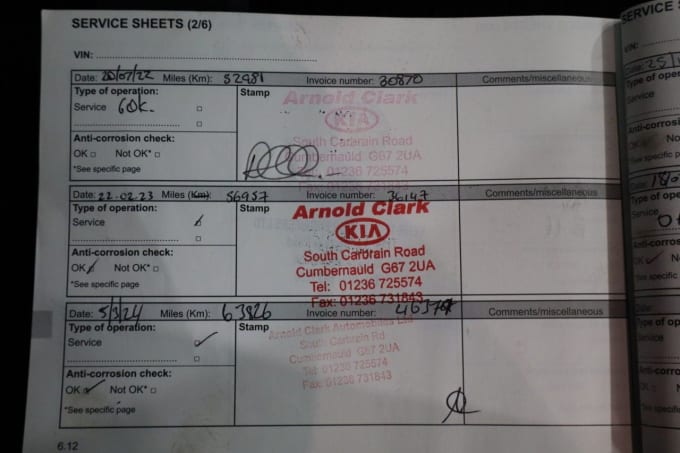 SERVICE SHEETS (2/6)
VIN:
Date: 20/07/22 Miles (Km): 52981 Invoice number: 30870 Comments/miscellaneous
Type of operation: Stamp
Service 60k.
Arnold Clark
KIA
South Carbrain Road
Cumbernauld G67 2UA
01236 725574
Anti-corrosion check:
OK Not OK*
*See specific page
Date: 22.02.23 Miles (Km): 56957 Invoice number: 36147 Comments/miscellaneous
Type of operation: Stamp
Service
Arnold Clark
KIA
South Carbrain Road
Cumbernauld G67 2UA
Tel: 01236 725574
Fax: 01236 731843
Anti-corrosion check:
OK Not OK*
*See specific page
Date: 5/3/24 Miles (Km): 63826 Invoice number: Comments/miscellaneous
Type of operation: Stamp
Service
Arnold Clark Automobiles Ltd
South Carbrain Rd
Cumbernauld G67 2UA
Tel: 01236 725574
Fax: 01236 731843
Anti-corrosion check:
OK Not OK*
*See specific page
6.12
SERVICE
VIN:
Date:
Type of
Service
Anti-corros
OK
*See specific p
Date:
Type of ope
Service
Anti-corros
OK
*See specific
Date:
Type of op
Service
Anti-corro
OK
*See spec